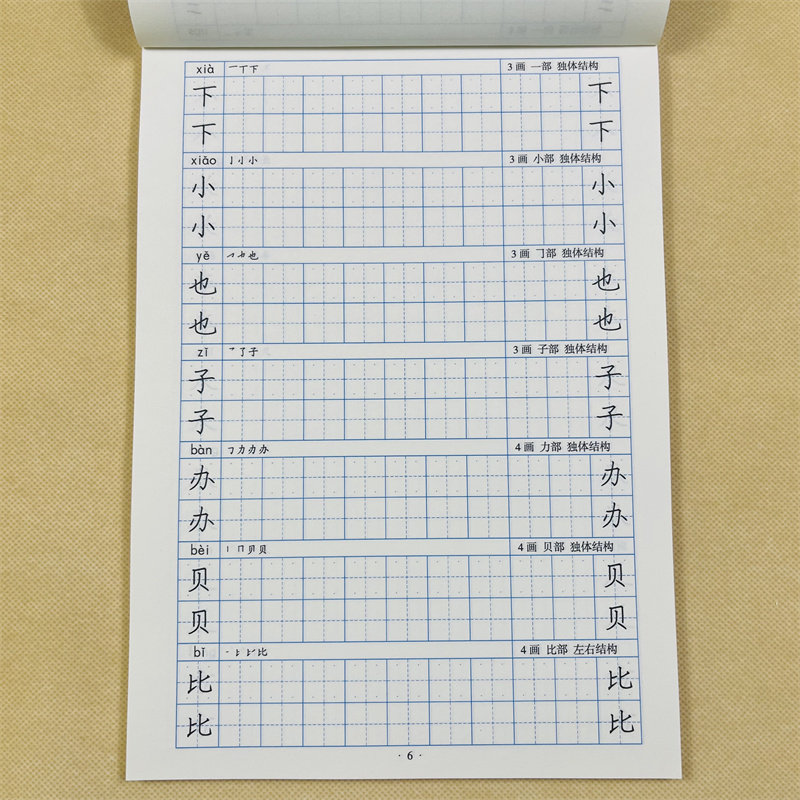 xià 一丁下 3画 一部 独体结构
下 下
下 下
xiǎo 亅小小 3画 小部 独体结构
小 小
小 小
yě 也 3画 乛部 独体结构
也 也
也 也
zǐ 乛了子 3画 子部 独体结构
子 子
子 子
bàn 力力办 4画 力部 独体结构
办 办
办 办
bèi 丨冂贝贝 4画 贝部 独体结构
贝 贝
贝 贝
bǐ 比 4画 比部 左右结构
比 比
比 比
· 6 ·